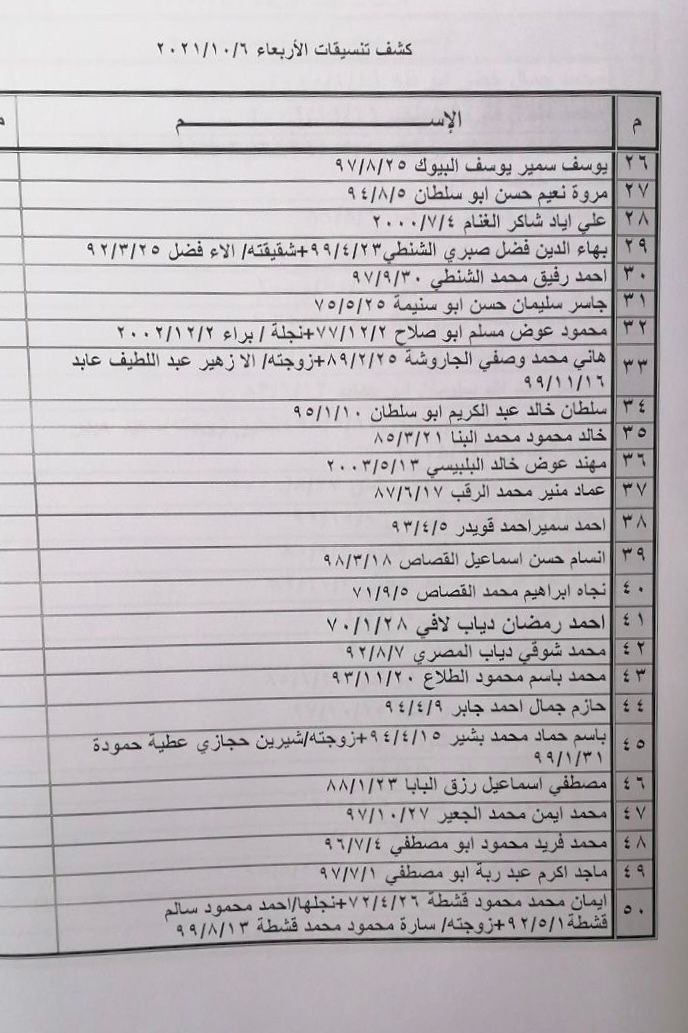 كشف تنسيقات الأربعاء ٢٠٢١/١٠/٦
م الإســـــــــــــــــــــم م
٢٦ يوسف سمير يوسف البيوك ٩٧/٨/٢٥
٢٧ مروة نعيم حسن ابو سلطان ٩٤/٨/٥
٢٨ علي اياد شاكر الغنام ٢٠٠٠/٧/٤
٢٩ بهاء الدين فضل صبري الشنطي٩٩/٤/٢٣+شقيقته/ الاء فضل ٩٢/٣/٢٥
٣٠ احمد رفيق محمد الشنطي ٩٧/٩/٣٠
٣١ جاسر سليمان حسن ابو سنيمة ٧٥/٥/٢٥
٣٢ محمود عوض مسلم ابو صلاح ٧٧/١٢/٢+نجلة / براء ٢٠٠٢/١٢/٢
٣٣ هاني محمد وصفي الجاروشة ٨٩/٢/٢٥+زوجته/ الا زهير عبد اللطيف عابد
٩٩/١١/١٦
٣٤ سلطان خالد عبد الكريم ابو سلطان ٩٥/١/١٠
٣٥ خالد محمود محمد البنا ٨٥/٣/٢١
٣٦ مهند عوض خالد البلبيسي ٢٠٠٣/٥/١٣
٣٧ عماد منير محمد الرقب ٨٧/٦/١٧
٣٨ احمد سميراحمد قويدر ٩٣/٤/٥
٣٩ انسام حسن اسماعيل القصاص ٩٨/٣/١٨
٤٠ نجاه ابراهيم محمد القصاص ٧١/٩/٥
٤١ احمد رمضان دياب لافي ٧٠/١/٢٨
٤٢ محمد شوقي دياب المصري ٩٢/٨/٧
٤٣ محمد باسم محمود الطلاع ٩٣/١١/٢٠
٤٤ حازم جمال احمد جابر ٩٤/٤/٩
٤٥ باسم حماد محمد بشير ٩٤/٤/١٥+زوجته/شيرين حجازي عطية حمودة
٩٩/١/٣١
٤٦ مصطفي اسماعيل رزق البابا ٨٨/١/٢٣
٤٧ محمد ايمن محمد الجعير ٩٧/١٠/٢٧
٤٨ محمد فريد محمود ابو مصطفي ٩٦/٧/٤
٤٩ ماجد اكرم عبد ربة ابو مصطفي ٩٧/٧/١
٥٠ ايمان محمد محمود قشطة ٧٢/٤/٢٦+نجلها/احمد محمود سالم
قشطة٩٢/٥/١+زوجته/ سارة محمود محمد قشطة ٩٩/٨/١٣